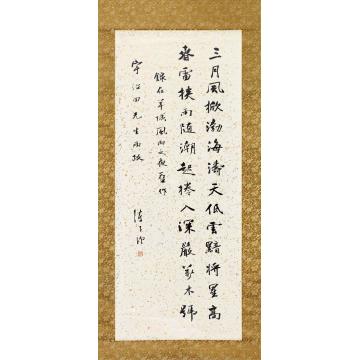 三月風掀渤海濤天低雲黯將星高
春雷挾雨隨潮起捲入深嚴萬木號
錄在羊城風雨之夜舊作
寧江田先生兩